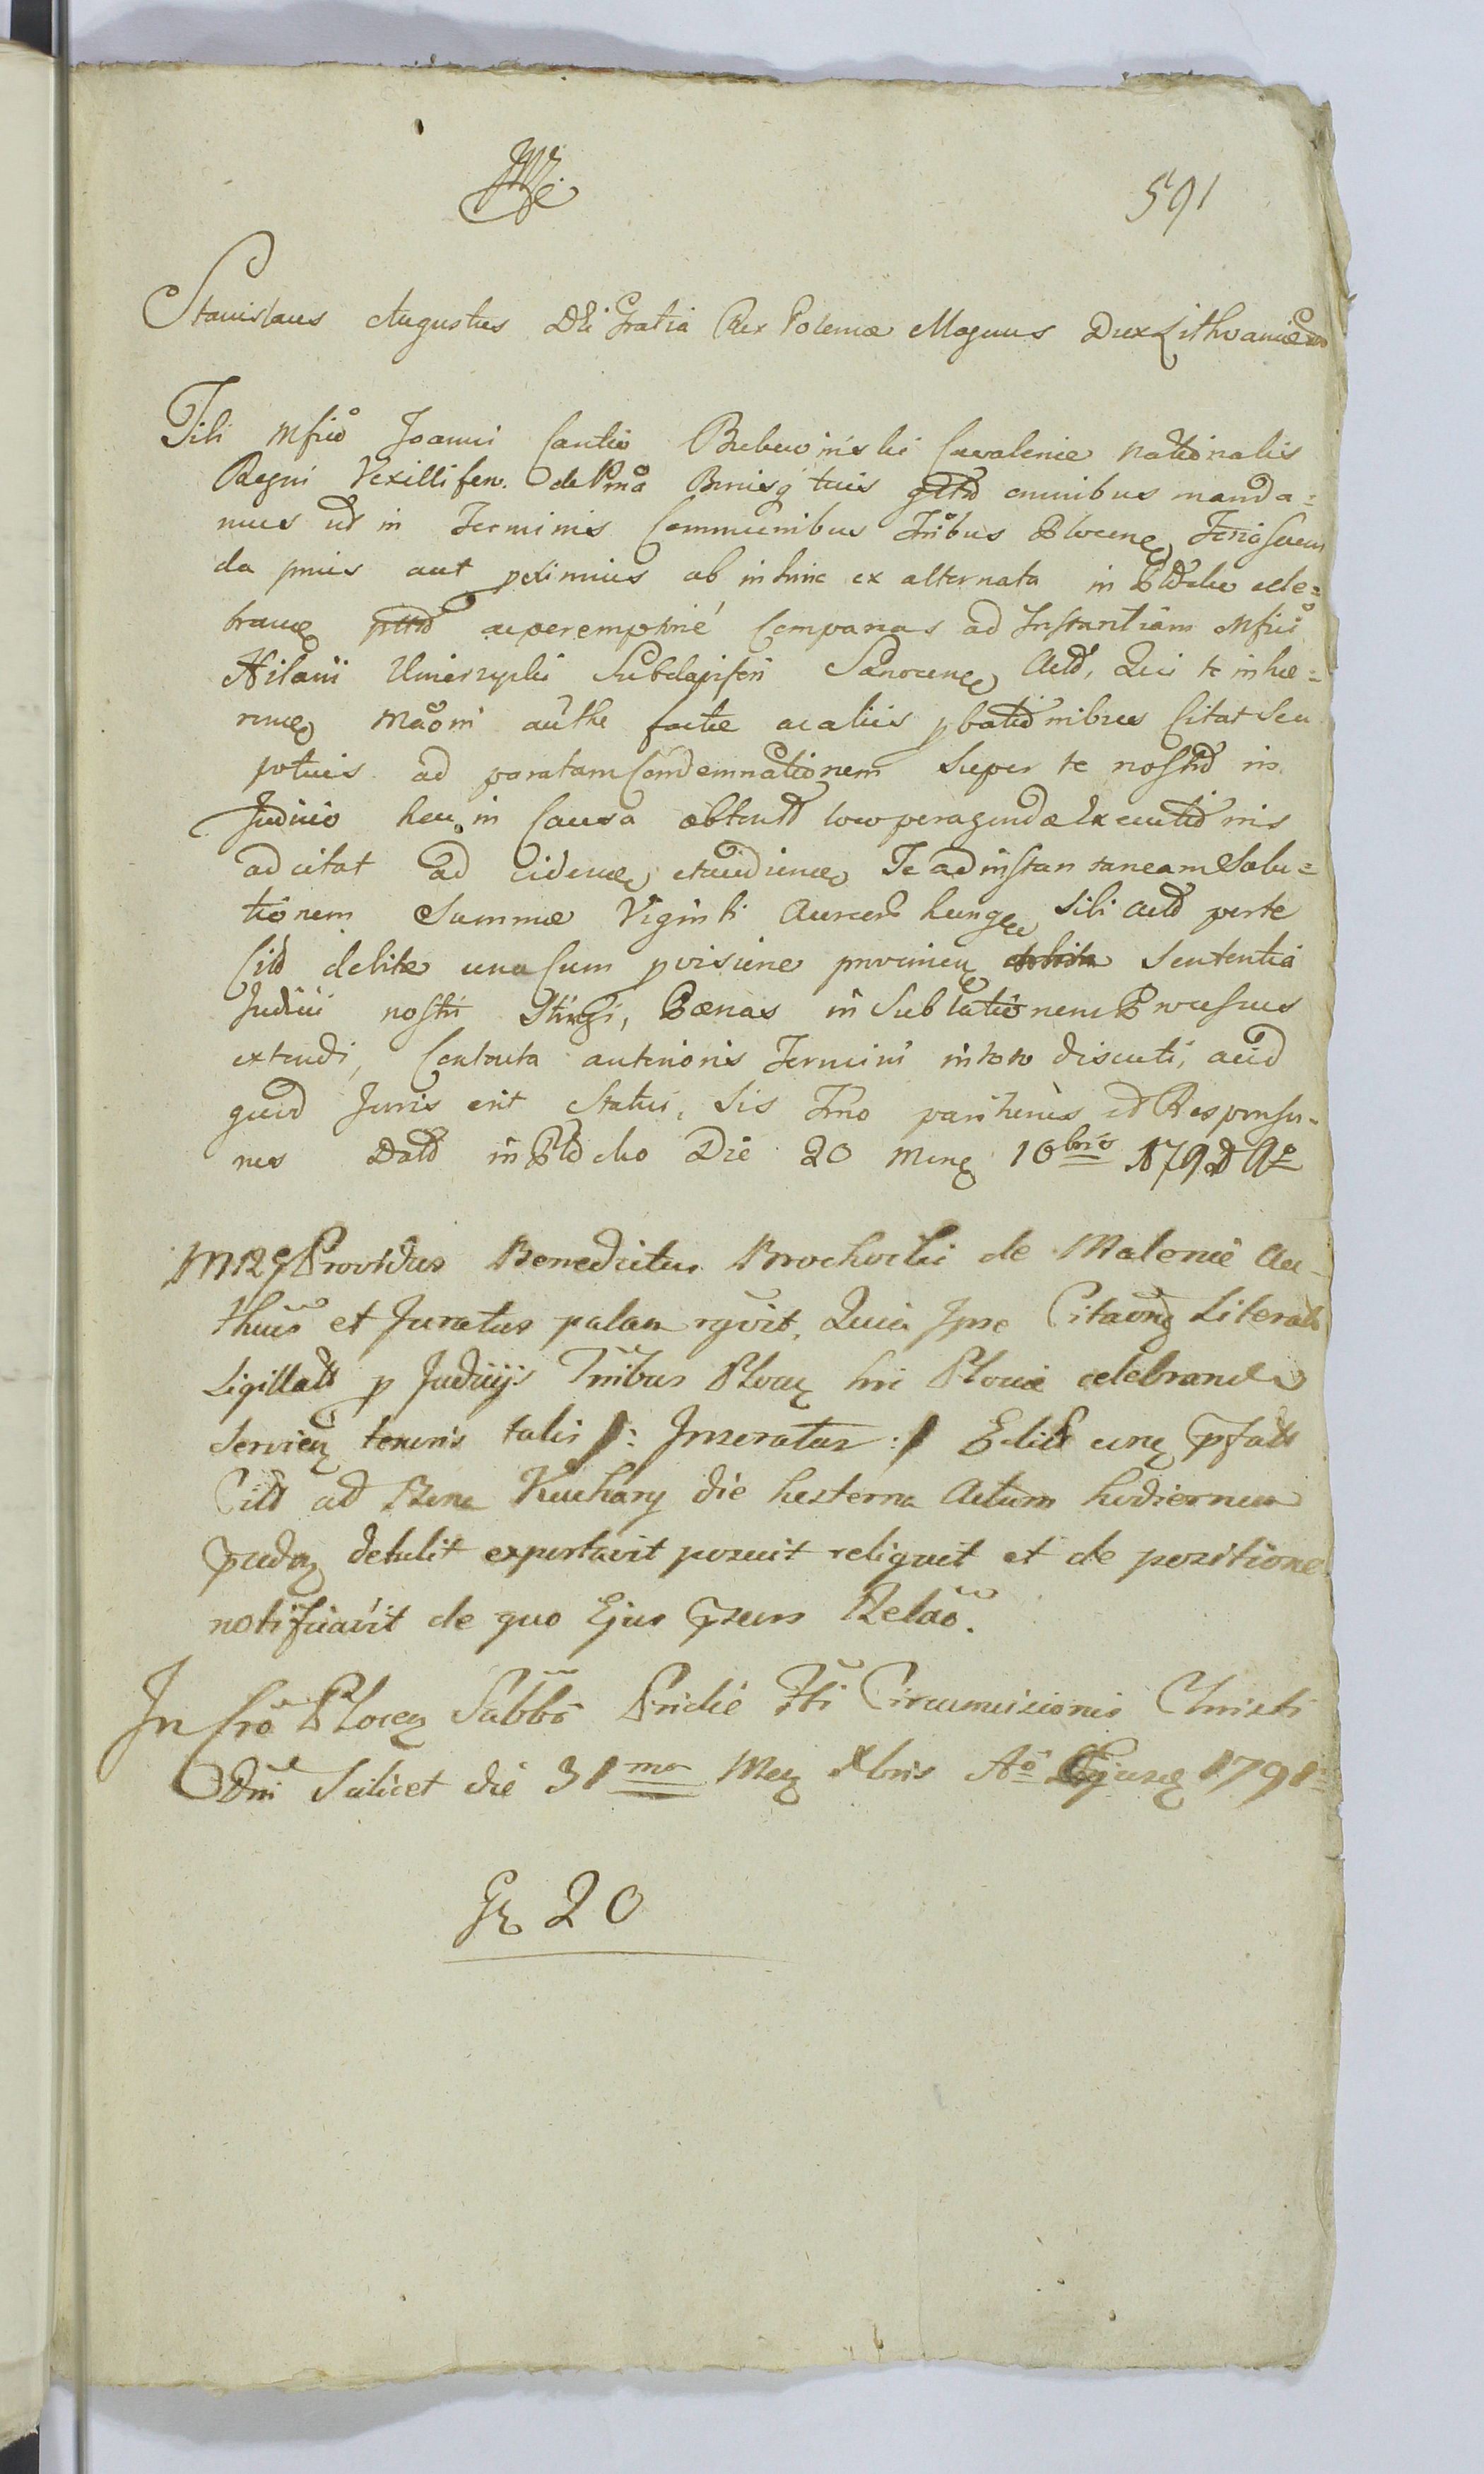 591
Stanislaus Augustus Dei Gratia Rex Poloniæ Magnus Dux Lithvaniæ
Tibi Mfico Joanni Cantio Bukwinski Cavaleriæ nationalis
Regni Vexillifero de Bonisq tuis gnlt omnibus manda=
mus ut in Terminis Communibus Tribus Plocens Feria Secun
da prius aut proximius ab inhinc ex alternata in Plocko cele=
brans acperemptorie Compareas ad Instantiam Mfici
Hilarii Subdapiferi Sanocens Act, Qui te inhæ=
rens ac aliis pbationibus Citat seu
potius ad paratam Condemnationem Super te nostro in
Judicio hac in Causa obtent loco peragendæ Executionis
adcitat ad Videns etaudiens Te ad instantaneam Solu=
tionem Summæ Viginti Aureor hung sibi Act perte
Citt debite una Cum pvisione provenien Sententia
Judicii nostri Stringi, Pœnas in Sublationem Processus
extendi, Contenta anterioris Termini intoto discuti, acid
quid Juris erit Statui, Sis Tmo pariturus et Responsu=
rus Datt in Plocko Die 20 Mens 10bris 179 Ao
Providus Benedictus Brochocki de Malonie Au-
thus et Juratus palam rgvit, Quia Ipse Citaong Literat
Sigillatt p Judicijs Tribus Plocen hic Plociæ celebrand
Servien tenoris talis /: Inseratur :/ Edict eunq pfatt
Citt ad Bona Kuchary die hesterna Actum hodiernum
pceden detulit exportavit posuit reliquit et de pozitione
notificavit de quo Ejus pæsens Relao.
In Cro Plocen Sabbo Pridie Fti Circumcisionis Christi
Dni Scilicet die 31ma Men Xbris Ao Ejusd 1791
Gr 20